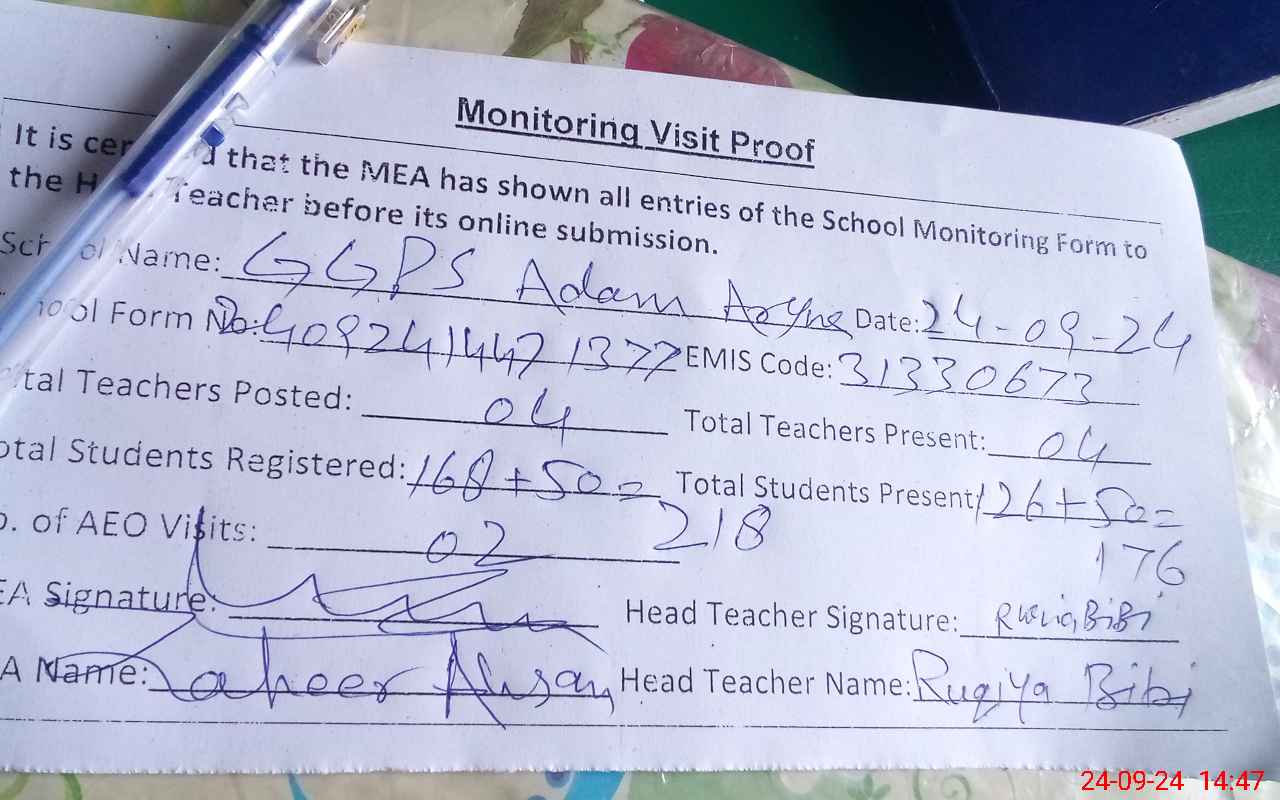 Monitoring Visit Proof
It is cer d that the MEA has shown all entries of the School Monitoring Form to
the H Teacher before its online submission.
Sch ol Name: GGPS Adam Date: 24-09-24
hool Form No: 24092414471377 EMIS Code: 31330673
tal Teachers Posted: 04 Total Teachers Present: 04
otal Students Registered: 168+50= Total Students Present: 126+50=
218 176
o. of AEO Visits: 02
EA Signature: Head Teacher Signature: RuqiaBiBi
A Name: Zaheer Ahsan Head Teacher Name: Ruqiya Bibi
24-09-24 14:47